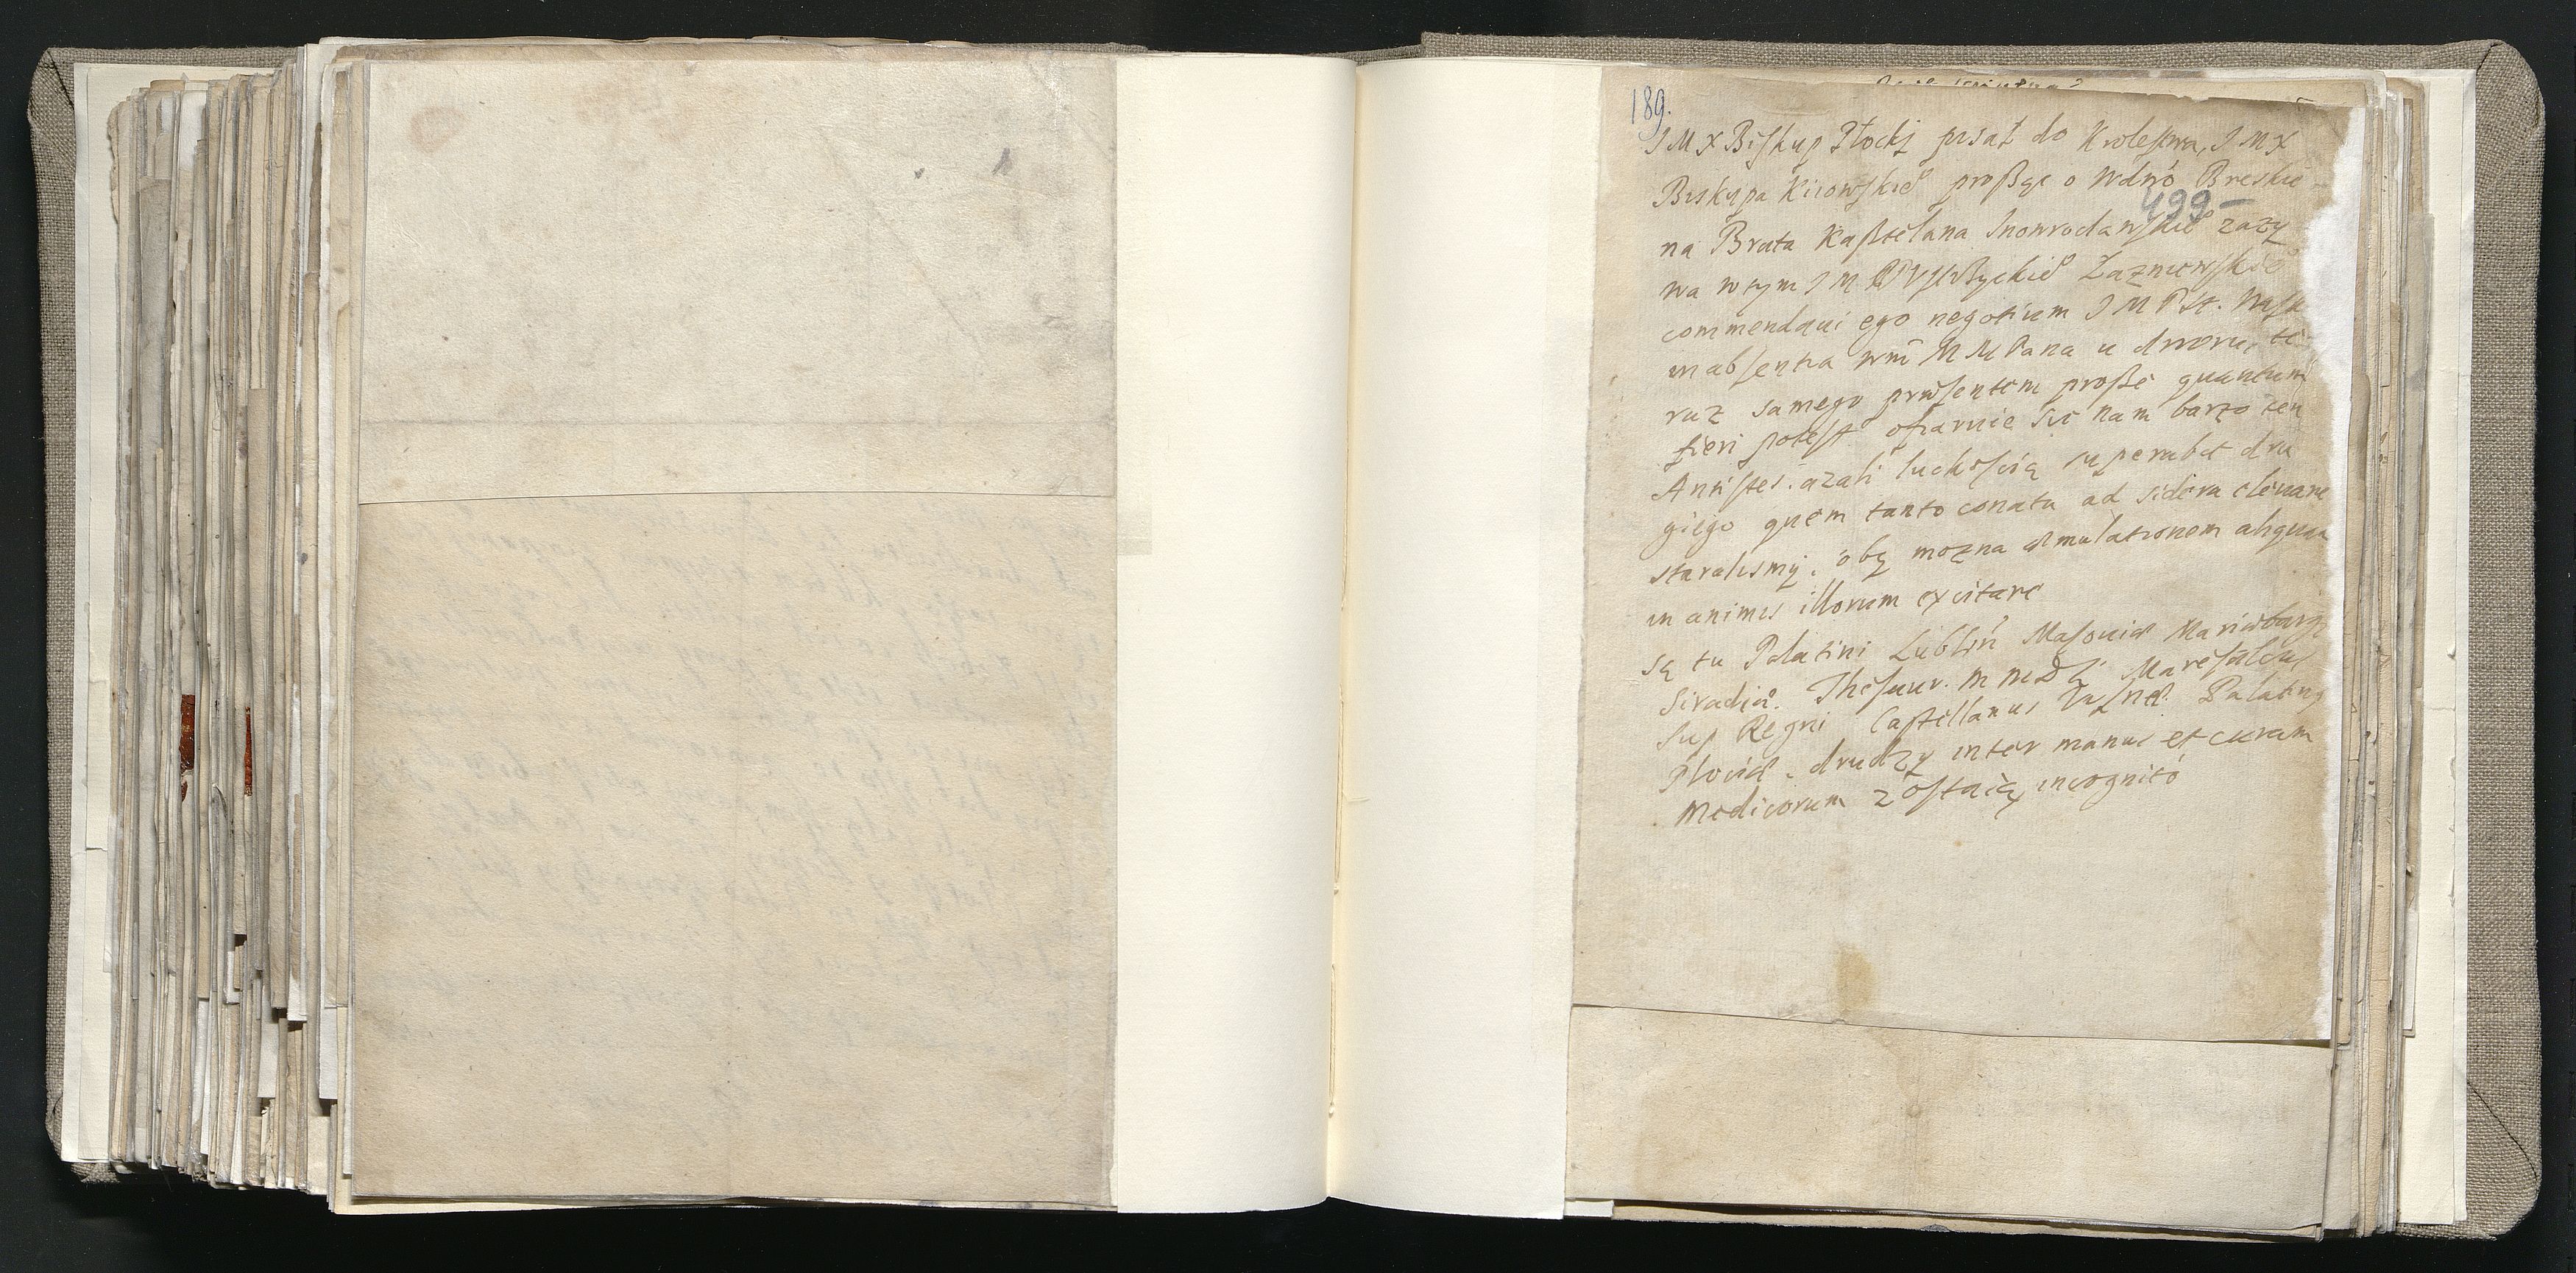 189.
J M X Biskup Płocki pisał do Krolestwa, J M X
Biskupa Kiiowskie° proßąc o Wdwo Breskie
499
na Brata Kasztelana Inowrocławskie° zazy
wa w tym J M
commendaui ego negotium J M P St.
in absentia wm̃ M M Pana u dworu, te
raz samego præsentem proßę quantum
fieri potest ofiaruie się nam barzo ten
Antistes. azali ludzkoscią superabit dru
giego quem tanto conatu ad sidera eleuare
staralismy. oby mozna æmulationem aliquam
in animis illorum excitare
są tu Palatini Lublin Masouiæ Mariæburg
Siradiæ. Thesaur. M M D L Maresalcus
Sup Regni Castellanus Palatinus
Plociæ. drudzy inter manus et curam
Medicorum zostaią incognito